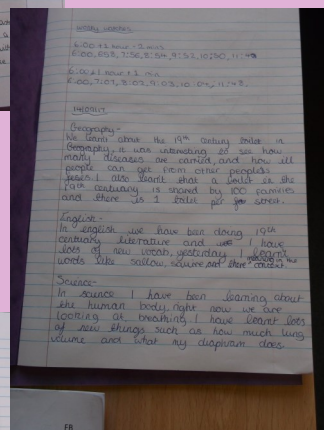 6:00 +1 hour - 2 mins
6:00, 6:58, 7:56, 8:54, 9:52, 10:50, 11:48
6:00 +1 hour + 1 min
6:00, 7:01, 8:02, 9:03, 10:04,
Geography -
We learnt about the 19th century toilets in
Geography, it was interesting to see how
many diseases are carried, and how ill
people can get from other peoples
I also learnt that a toilet in the
19th centuary is shared by 100 families
and there is 1 toilet per street.
English -
In english we have been doing 19th
centuary literature and I have
lots of new vocab, yesterday I learnt
words like sallow, squire, and there meaning in the
context.
Science -
In science I have been learning about
the human body, right now we are
looking at breathing. I have learnt lots
of new things such as how much lung
volume and what my diaphram does.
FB